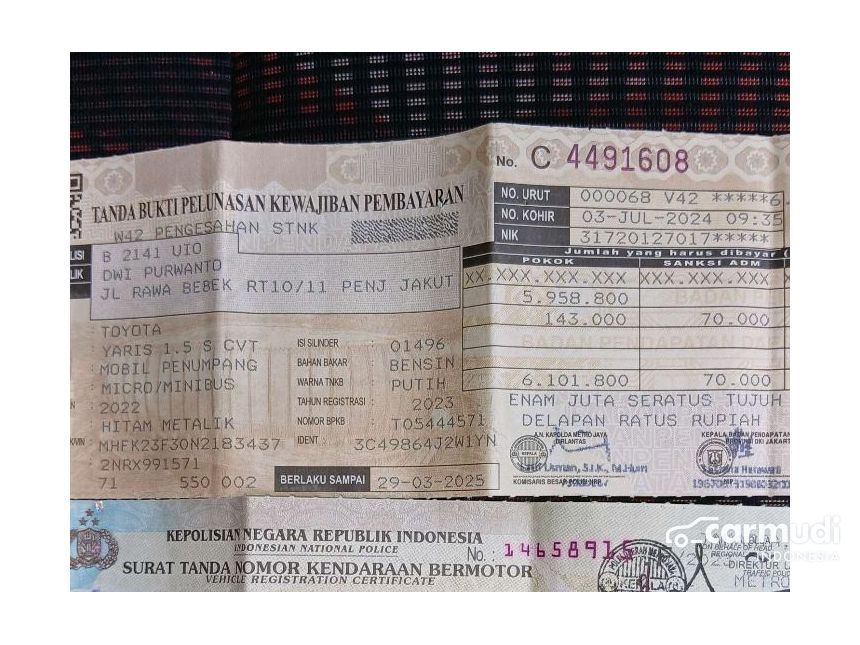 No. C 4491608
TANDA BUKTI PELUNASAN KEWAJIBAN PEMBAYARAN
W42 PENGESAHAN STNK
B 2141 UIO
DWI PURWANTO
JL RAWA BEBEK RT10/11 PENJ JAKUT
NO. URUT 000068 V42 *****6
NO. KOHIR 03-JUL-2024 09:35
NIK 31720127017*****
Jumlah yang harus dibayar (
POKOK SANKSI ADM
XX.XXX.XXX.XXX XXX.XXX.XXX
5.958.800
143.000 70.000
6.101.800 70.000
ENAM JUTA SERATUS TUJUH
DELAPAN RATUS RUPIAH
: TOYOTA
YARIS 1.5 S CVT
: MOBIL PENUMPANG
MICRO/MINIBUS
: 2022
: HITAM METALIK
MHFK23F30N2183437
2NRX991571
71 550 002
ISI SILINDER : 01496
BAHAN BAKAR : BENSIN
WARNA TNKB : PUTIH
TAHUN REGISTRASI : 2023
NOMOR BPKB : T05444571
IDENT : 3C49864J2W1YN
BERLAKU SAMPAI 29-03-2025
A.N. KAPOLDA METRO JAYA
DIRLANTAS
KEPALA BADAN PENDAPATAN
PROVINSI DKI JAKART
KOMISARIS BESAR POLISI NRP
KEPOLISIAN NEGARA REPUBLIK INDONESIA
INDONESIAN NATIONAL POLICE
No. : 14658915
SURAT TANDA NOMOR KENDARAAN BERMOTOR
VEHICLE REGISTRATION CERTIFICATE
DIREKTUR L
METRO
carmudi
INDONESIA